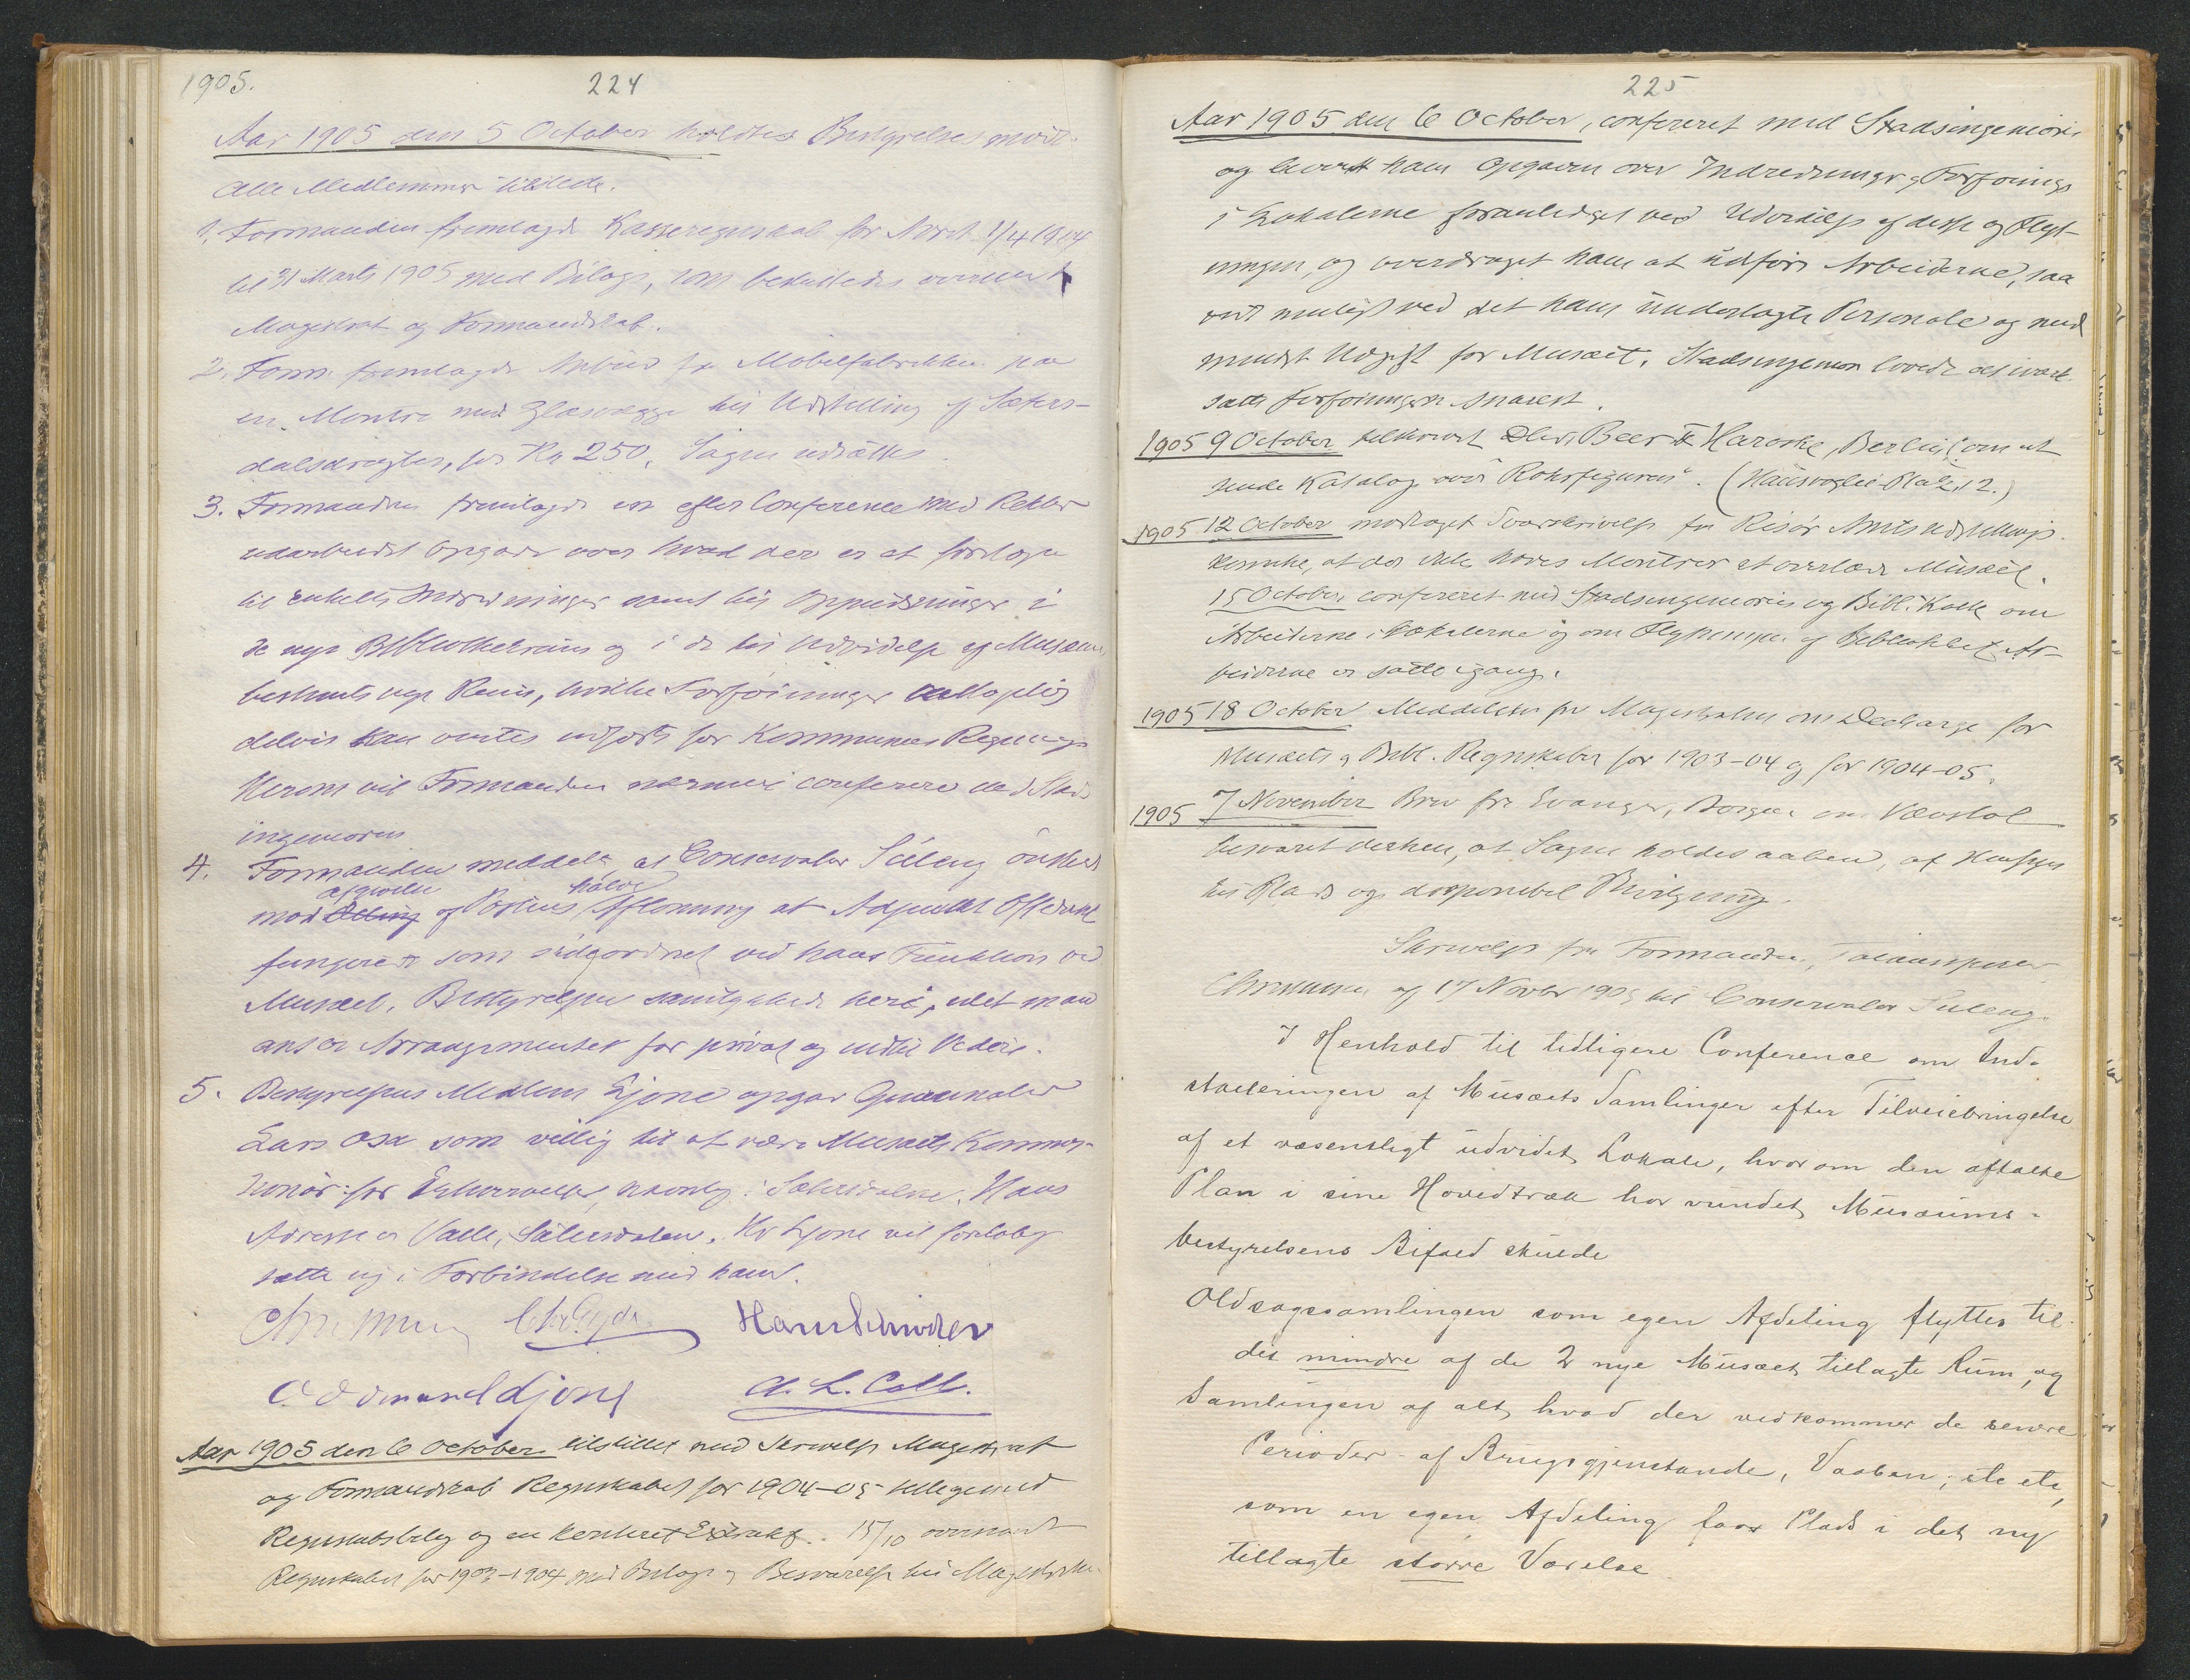 1905.
224
Aar 1905 den 5 October holdtes Bestyrelsesmöde.
Alle Medlemmer tilstede.
1. Formanden fremlagde Kasseregnskab for Aaret 1/4 1904
til 31 Marts 1905 med Bilage, som besluttedes oversendt
Magistrat og Formandskab.
2. Form. fremlagde Anbud fra Möbelfabrikken paa
en Montre med Glasvægge til Udstilling af Sæters-
dalsdragter, for Kr 250. Sagen udsattes.
3. Formanden fremlagde en efter Conference med Rektor
udarbeidet Opgave over hvad der er at foretage
til enkelte Indredninger samt til Oppudsninger i
de nye Bibliothekrum og i de til Udvidelse af Musæet
bestemte nye Rum, hvilke Forföininger
delvis kan ventes udfört for Kommunens Regning
Herom vil Formanden nærmere conferere med Stads
ingeniören
4. Formanden meddelte at Conservator Suleng önsker
afgivelse halve
mod Deling af Postens Aflönning at Adjunkt Oftedahl
fungerer som sideordnet ved hans Funktion ved
Musæet. Bestyrelsen samtykkede heri, idet man
anser Arrangementet for privat og indtil Videre.
5. Bestyrelsens Medlem Ljone opgav
Lars Osa som villig til at være Musæets Kommis-
sionær for Erhvervelser, navnlig i Sætersdalen. Hans
Adresse er Valle, Sætersdalen. Hr Ljone vil foreløbig
sætte sig i Forbindelse med ham.
Hans Schröder
Oddmund Ljone A. L. Coll.
Aar 1905 den 6 October tilstillet med Skrivelse Magistrat
og Formandskab Regnskabet for 1904-05 tilligemed
Regnskabsbilag og en Extrakt. 15/10 oversendt
Regnskabet for 1903-1904 med Bilage og Besvarelse til Magistraten
225
Aar 1905 den 6 October, confereret med Stadsingeniören
og leveret ham Opgaven over Indredninger og Forföininger
i Lokalerne foranlediget ved Udvidelse af disse og Flyt-
ningen, og overdraget ham at udföre Arbeiderne, saa
vidt muligt ved det ham underlagte Personale og med
mindst Udgift for Musæet. Stadsingeniören lovede at iværk
sætte Forföiningerne snarest.
1905 9 October tilskrevet Beer & Haroske, Berlin, om at
sende Katalog over "Rohrfiguren". (Hausvogtei-Platz 12.)
1905 12 October modtaget Svarskrivelse fra Risör Amtsudstillings
Komite, at der ikke haves Montrer at overlade Musæet.
15 October confereret med Stadsingeniören og Bibl. Kolle om
Arbeiderne i Lokalerne og om Flytningen af Bibliothket. Ar-
beiderne er satte igang.
1905 18 October Meddelelse fra Magistraten om Decharge for
Musæets og Bibl. Regnskaber for 1903-04 og for 1904-05.
1905 7 November Brev fra Evanger, Bergen om Vævstol
besvaret derhen, at Sagen holdes aaben, af Hensyn
til Plads og disponibel Bevilgning.
Skrivelse fra Formanden, Toldinspektör
Christensen af 17 Novbr 1905 til Conservator Suleng.
I Henhold til tidligere Conference om Ind-
stalleringen af Musæets Samlinger efter Tilveiebringelse
af et væsentligt udvidet Lokale, hvorom den aftalte
Plan i sine Hovedtræk har vundet Musæums-
bestyrelsens Bifald skulde
Oldsagssamlingen som egen Afdeling flyttes til
det mindre af de 2 nye Musæet tillagte Rum, og
Samlingen af alt, hvad der vedkommer de senere
Perioder - af Brugsgjenstande, Vaaben, etc etc,
som en egen Afdeling faar Plads i det ny
tillagte större Værelse